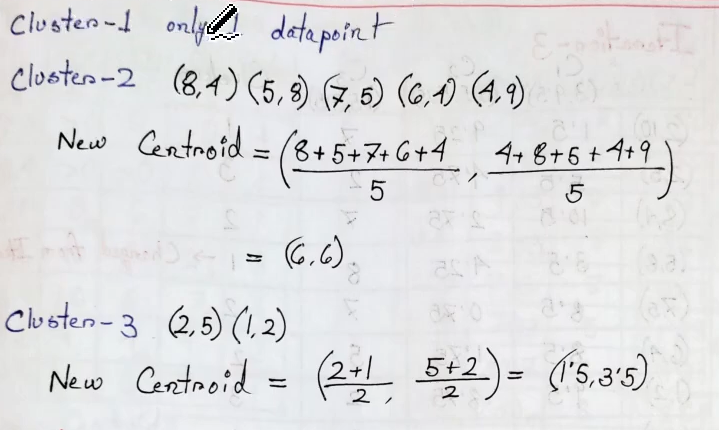 Cluster-1 only 1 datapoint
Cluster-2 (8,4) (5,8) (7,5) (6,4) (4,9)
New Centroid = (8+5+7+6+4/5, 4+8+5+4+9/5)
= (6,6)
Cluster-3 (2,5) (1,2)
New Centroid = (2+1/2, 5+2/2) = (1.5,3.5)